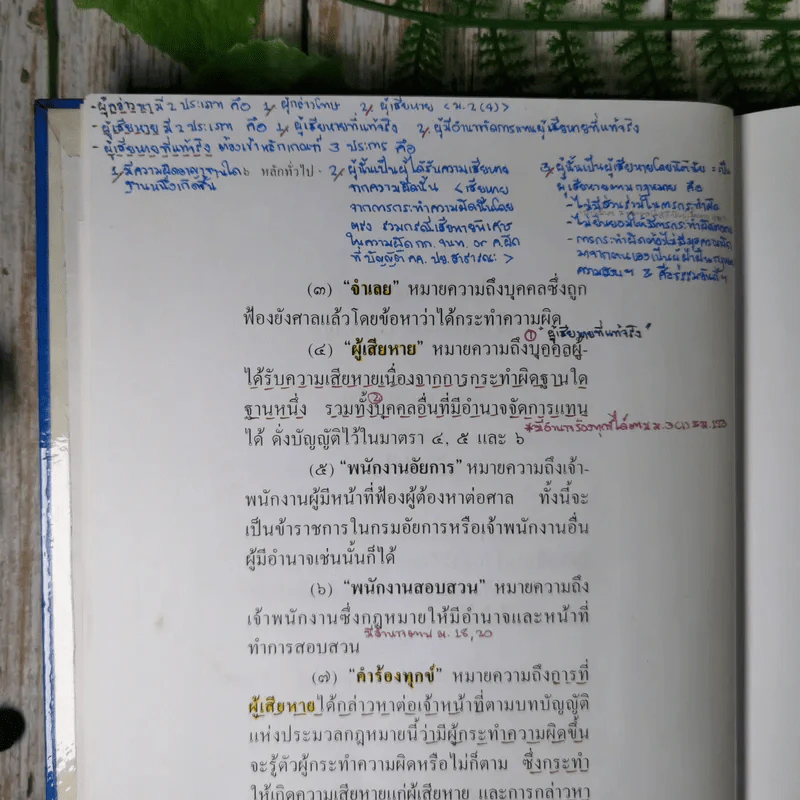 - ผู้กล่าวหา มี 2 ประเภท คือ 1. ผู้กล่าวโทษ 2. ผู้เสียหาย <ม.2(4)>
- ผู้เสียหาย มี 2 ประเภท คือ 1. ผู้เสียหายที่แท้จริง 2. ผู้มีอำนาจจัดการแทนผู้เสียหายที่แท้จริง
- ผู้เสียหายที่แท้จริง ต้องเข้าหลักเกณฑ์ 3 ประการ คือ
1. มีความผิดอาญาฐานใด
ฐานหนึ่งเกิดขึ้น
๖ หลักทั่วไป
2. ผู้นั้นเป็นผู้ได้รับความเสียหาย
จากความผิดนั้น <เสียหาย
จากการกระทำความผิดนั้นโดย
ตรง รวมกรณีเสียหายพิเศษ
ในความผิด or
ที่บัญญัติ สาธารณะ >
3. ผู้นั้นเป็นผู้เสียหายโดยนิตินัย = เป็น
ผู้เสียหายตามกฎหมาย คือ
- ไม่มีส่วนร่วมในการกระทำผิด
- ไม่ยินยอมให้มีการกระทำผิด
- การกระทำผิดต้องไม่มีมูลความผิด
มาจากตนเองเป็นผู้ฝ่าฝืนกฎหมาย
(๓) “จำเลย” หมายความถึงบุคคลซึ่งถูก
ฟ้องยังศาลแล้วโดยข้อหาว่าได้กระทำความผิด
① "ผู้เสียหายที่แท้จริง"
(๔) “ผู้เสียหาย” หมายความถึงบุคคลผู้-
ได้รับความเสียหายเนื่องจากการกระทำผิดฐานใด
ฐานหนึ่ง รวมทั้ง②บุคคลอื่นที่มีอำนาจจัดการแทน
ได้ ดังบัญญัติไว้ในมาตรา ๔, ๕ และ ๖
*มีอำนาจร้องทุกข์ได้ตาม ม.3(1)
(๕) “พนักงานอัยการ” หมายความถึงเจ้า-
พนักงานผู้มีหน้าที่ฟ้องผู้ต้องหาต่อศาล ทั้งนี้จะ
เป็นข้าราชการในกรมอัยการหรือเจ้าพนักงานอื่น
ผู้มีอำนาจเช่นนั้นก็ได้
(๖) “พนักงานสอบสวน” หมายความถึง
เจ้าพนักงานซึ่งกฎหมายให้มีอำนาจและหน้าที่
ทำการสอบสวน
มีอำนาจตาม ม. 18, 20
(๗) “คำร้องทุกข์” หมายความถึงการที่
ผู้เสียหายได้กล่าวหาต่อเจ้าหน้าที่ตามบทบัญญัติ
แห่งประมวลกฎหมายนี้ว่ามีผู้กระทำความผิดขึ้น
จะรู้ตัวผู้กระทำความผิดหรือไม่ก็ตาม ซึ่งกระทำ
ให้เกิดความเสียหายแก่ผู้เสียหาย และการกล่าวหา